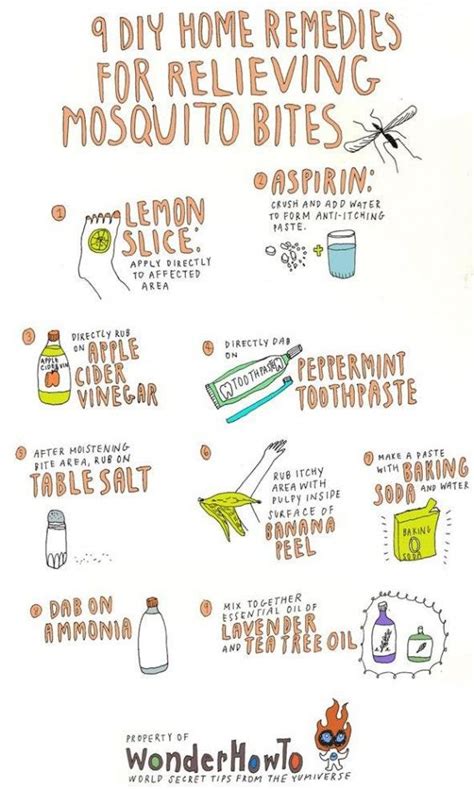 9 DIY HOME REMEDIES
FOR RELIEVING
MOSQUITO BITES
1
LEMON
SLICE:
APPLY DIRECTLY
TO AFFECTED
AREA
2 ASPIRIN:
CRUSH AND ADD WATER
TO FORM ANTI-ITCHING
PASTE.
+
3 DIRECTLY RUB
ON APPLE
CIDER
VINEGAR
APPLE
CIDER VIN
4 DIRECTLY DAB
ON
PEPPERMINT
TOOTHPASTE
TOOTHPASTE
5 AFTER MOISTENING
BITE AREA, RUB ON
TABLE SALT
6
RUB ITCHY
AREA WITH
PULPY INSIDE
SURFACE OF
BANANA
PEEL
7 MAKE A PASTE
WITH BAKING
SODA AND WATER
BAKING
SODA
8 DAB ON
AMMONIA
9 MIX TOGETHER
ESSENTIAL OIL OF
LAVENDER
AND TEA TREE OIL
PROPERTY OF
WonderHowTo
WORLD SECRET TIPS FROM THE YUMIVERSE